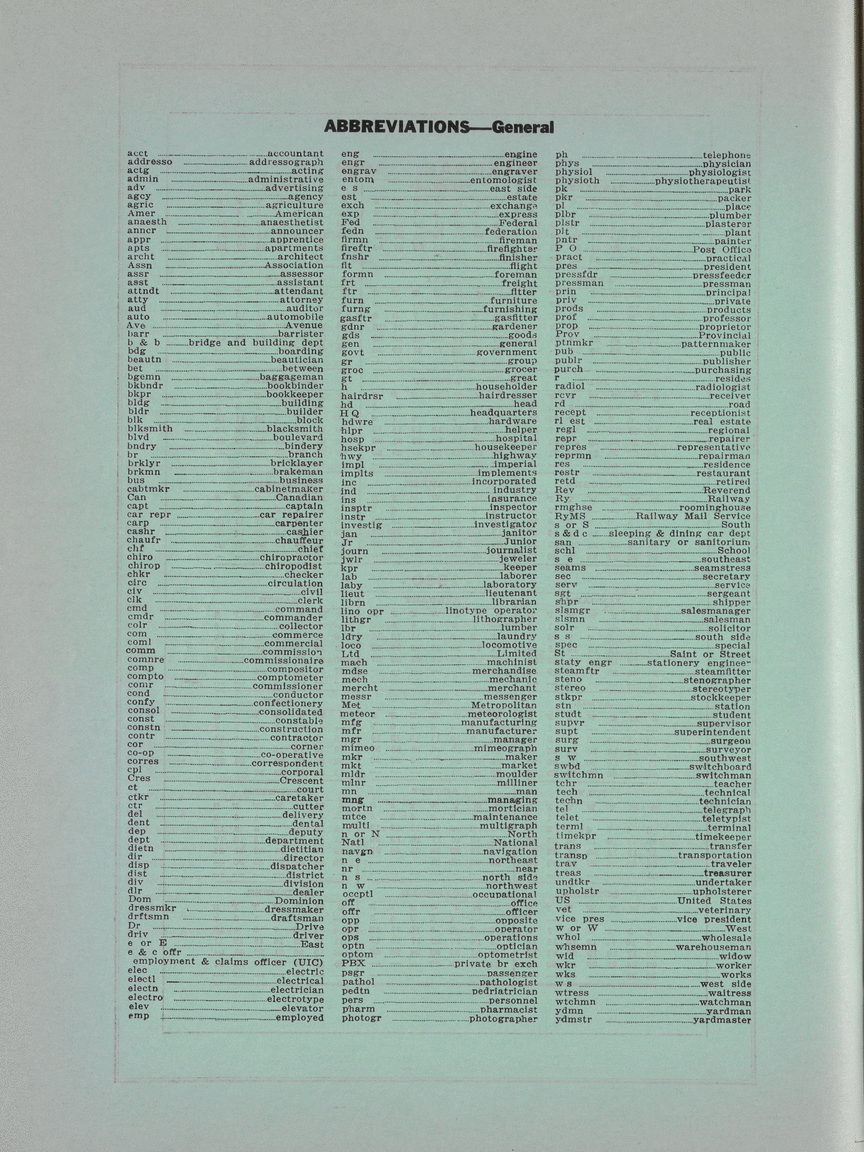 ABBREVIATIONS—General
acct accountant
addresso addressograph
actg acting
admin administrative
adv advertising
agcy agency
agric agriculture
Amer American
anaesth anaesthetist
anncr announcer
appr apprentice
apts apartments
archt architect
Assn Association
assr assessor
asst assistant
attndt attendant
atty attorney
aud auditor
auto automobile
Ave Avenue
barr barrister
b & b bridge and building dept
bdg boarding
beautn beautician
bet between
bgemn baggageman
bkbndr bookbinder
bkpr bookkeeper
bldg building
bldr builder
blk block
blksmith blacksmith
blvd boulevard
bndry bindery
br branch
brklyr bricklayer
brkmn brakeman
bus business
cabtmkr cabinetmaker
Can Canadian
capt captain
car repr car repairer
carp carpenter
cashr cashier
chaufr chauffeur
chf chief
chiro chiropractor
chirop chiropodist
chkr checker
circ circulation
civ civil
clk clerk
cmd command
cmdr commander
colr collector
com commerce
coml commercial
comm commission
comnre commissionaire
comp compositor
compto comptometer
comr commissioner
cond conductor
confy confectionery
consol consolidated
const constable
constn construction
contr contractor
cor corner
co-op co-operative
corres correspondent
cpl corporal
Cres Crescent
ct court
ctkr caretaker
ctr cutter
del delivery
dent dental
dep deputy
dept department
dietn dietitian
dir director
disp dispatcher
dist district
div division
dlr dealer
Dom Dominion
dressmkr dressmaker
drftsmn draftsman
Dr Drive
driv driver
e or E East
e & c offr
employment & claims officer (UIC)
elec electric
electl electrical
electn electrician
electro electrotype
elev elevator
emp employed
eng engine
engr engineer
engrav engraver
entom entomologist
e s east side
est estate
exch exchange
exp express
Fed Federal
fedn federation
firmn fireman
fireftr firefighter
fnshr finisher
flt flight
formn foreman
frt freight
ftr fitter
furn furniture
furng furnishing
gasftr gasfitter
gdnr gardener
gds goods
gen general
govt government
gr group
groc grocer
gt great
h householder
hairdrsr hairdresser
hd head
H Q headquarters
hdwre hardware
hlpr helper
hosp hospital
hsekpr housekeeper
hwy highway
impl imperial
implts implements
inc incorporated
ind industry
ins insurance
insptr inspector
instr instructor
investig investigator
jan janitor
Jr Junior
journ journalist
jwlr jeweler
kpr keeper
lab laborer
laby laboratory
lieut lieutenant
librn librarian
lino opr linotype operator
lithgr lithographer
lbr lumber
ldry laundry
loco locomotive
Ltd Limited
mach machinist
mdse merchandise
mech mechanic
mercht merchant
messr messenger
Met Metropolitan
meteor meteorologist
mfg manufacturing
mfr manufacturer
mgr manager
mimeo mimeograph
mkr maker
mkt market
mldr moulder
mlnr milliner
mn man
mng managing
mortn mortician
mtce maintenance
multi multigraph
n or N North
Natl National
navgn navigation
n e northeast
nr near
n s north side
n w northwest
occptl occupational
off office
offr officer
opp opposite
opr operator
ops operations
optn optician
optom optometrist
PBX private br exch
psgr passenger
pathol pathologist
pedtn pedriatrician
pers personnel
pharm pharmacist
photogr photographer
ph telephone
phys physician
physiol physiologist
physioth physiotherapeutist
pk park
pkr packer
pl place
plbr plumber
plstr plasterer
plt plant
pntr painter
P O Post Office
pract practical
pres president
pressfdr pressfeeder
pressman pressman
prin principal
priv private
prods products
prof professor
prop proprietor
Prov Provincial
ptnmkr patternmaker
pub public
publr publisher
purch purchasing
r resides
radiol radiologist
rcvr receiver
rd road
recept receptionist
rl est real estate
regl regional
repr repairer
repres representative
reprmn repairman
res residence
restr restaurant
retd retired
Rev Reverend
Ry Railway
rmghse roominghouse
RyMS Railway Mail Service
s or S South
s & d c sleeping & dining car dept
san sanitary or sanitorium
schl School
s e southeast
seams seamstress
sec secretary
serv service
sgt sergeant
shpr shipper
slsmgr salesmanager
slsmn salesman
solr solicitor
s s south side
spec special
St Saint or Street
staty engr stationery engineer
steamftr steamfitter
steno stenographer
stereo stereotyper
stkpr stockkeeper
stn station
studt student
supvr supervisor
supt superintendent
surg surgeon
surv surveyor
s w southwest
swbd switchboard
switchmn switchman
tchr teacher
tech technical
techn technician
tel telegraph
telet teletypist
terml terminal
timekpr timekeeper
trans transfer
transp transportation
trav traveler
treas treasurer
undtkr undertaker
upholstr upholsterer
US United States
vet veterinary
vice pres vice president
w or W West
whol wholesale
whsemn warehouseman
wid widow
wkr worker
wks works
w s west side
wtress waitress
wtchmn watchman
ydmn yardman
ydmstr yardmaster